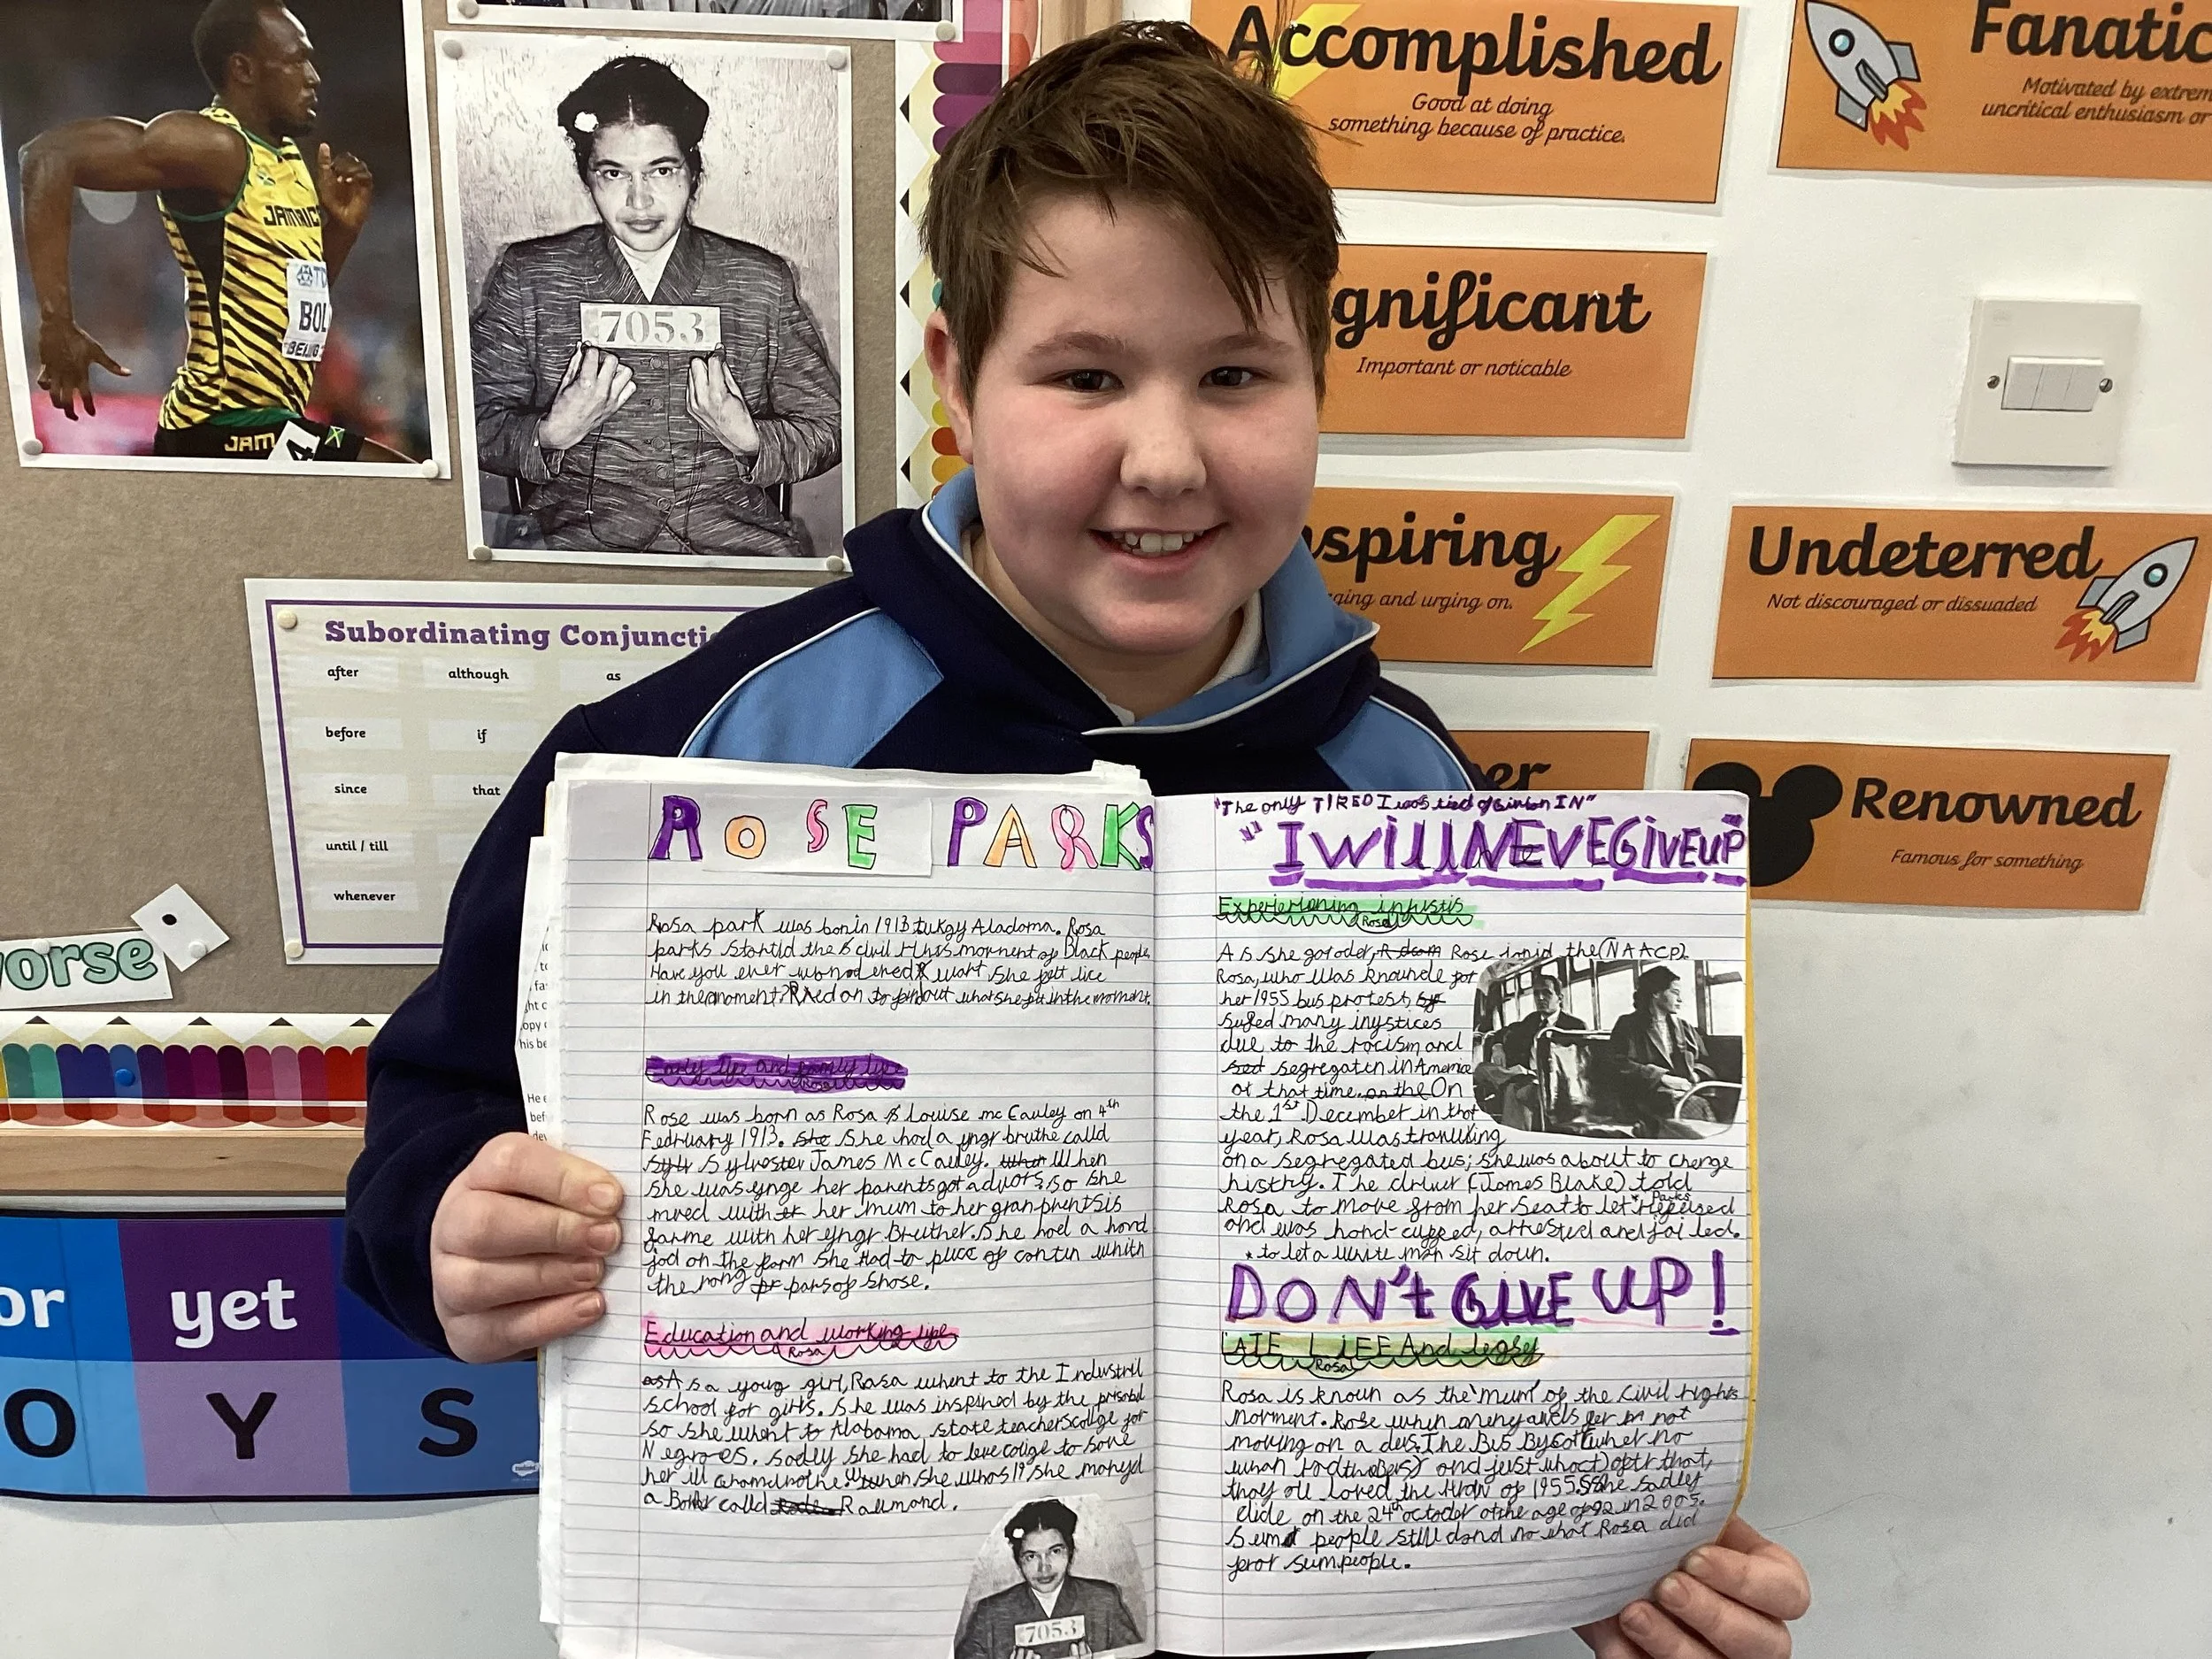 JAMAIC
BOL
BEIJING
JAM
4
7053
Accomplished
Good at doing
something because of practice.
Fanatic
Motivated by extrem
uncritical enthusiasm or
gnificant
Important or noticable
spiring
ging and urging on.
Undeterred
Not discouraged or dissuaded
er
Renowned
Famous for something
Subordinating Conjuncti
after although as
before if
since that
until / till
whenever
orse
or yet
O Y S
ROSE PARKS
Rosa park was bon in 1913 tukgy Aladama. Rosa
parks startid the civil mornment of Black people
Have you ever wonod ered wort she felt lice
in the moment? Rired on to find out what she felt in the moment.
Early life and family life
Rosa
Rose was born as Rosa Louise mc Cauley on 4th
Fedruary 1913. She She had a yngr bruthe calld
Sylvester James McCauley. When When
she was ynge her parents got advors, so she
mved with her mum to her granphentsis
farme with her yngr Bruther. She had a hord
jod on the farm She Had to puce of contin whith
the rong pars of shose.
Education and working life
Rosa
As a young girl, Rosa whent to the Industril
school for girls. She was inspired by the
so she whent to Alabama state teachers collge for
Negroes. Sadly she had to leve collge to save
her ill gramdmothe. When she whos 19 she maryd
a Barbr calld Raumond.
7053
"The only TIRED I was tied of Givion IN"
"I WILL NEVE GIVE UP"
Experiencing injustis
Rosa
As she got oder, Rose jonid the (NAACP).
Rosa, who was knownde for
her 1955 bus protest,
sufed many injystices
due to the racism and
segregaten in America
at that time. on the On
the 1st December in that
year, Rosa was travuling
on a segregated bus; she was about to change
histry. The driver (James Blake) told
Rosa to move from her seat to let* Parks Refeused
and was hand-cuffed, arrested and jailed.
* to let a white man sit down.
DON't GIVE UP!
LATE LIFE And legsy
Rosa
Rosa is known as the 'mum' of the civil rights
morment. Rose when meny awds for bn not
moving on a dus. The Bus Bycott (when no
whan rod the Bus) and just what) oftr that,
they all loved the Hrow of 1955. She sadley
dide on the 24th octoder at the age of 92 in 2005.
Sum people still dond no what Rosa did
for sum people.